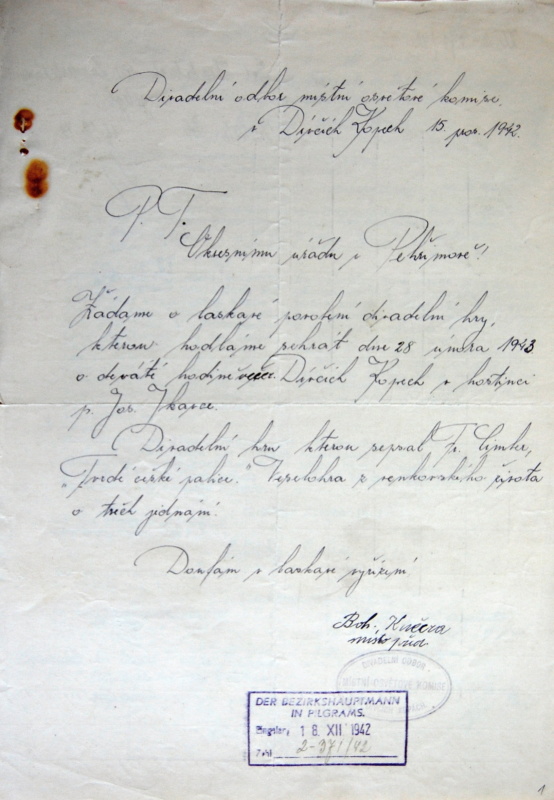 Divadelní odbor místní osvětové komise
v Dívčích Kopech 15. pros. 1942.
P. T.
Okresnímu úřadu v Pelhřimově!
Žádáme o laskavé povolení divadelní hry,
kterou hodláme sehrát dne 28 února 1943
o deváté hodině Dívčích Kopech v hostinci
p. Jos.
Divadelní hru kterou sepsal Fr. Cimler,
"Tvrdé české palice." Veselohra z venkovského života
o třech jednání.
Doufám v laskavé vyřízení
Boh. Kučera
míst. před.
DIVADELNÍ ODBOR
MÍSTNÍ OSVĚTOVÉ KOMISE
DER BEZIRKSHAUPTMANN
IN PILGRAMS.
Eingelangt 18. XII 1942
Zahl 2-371/42
1